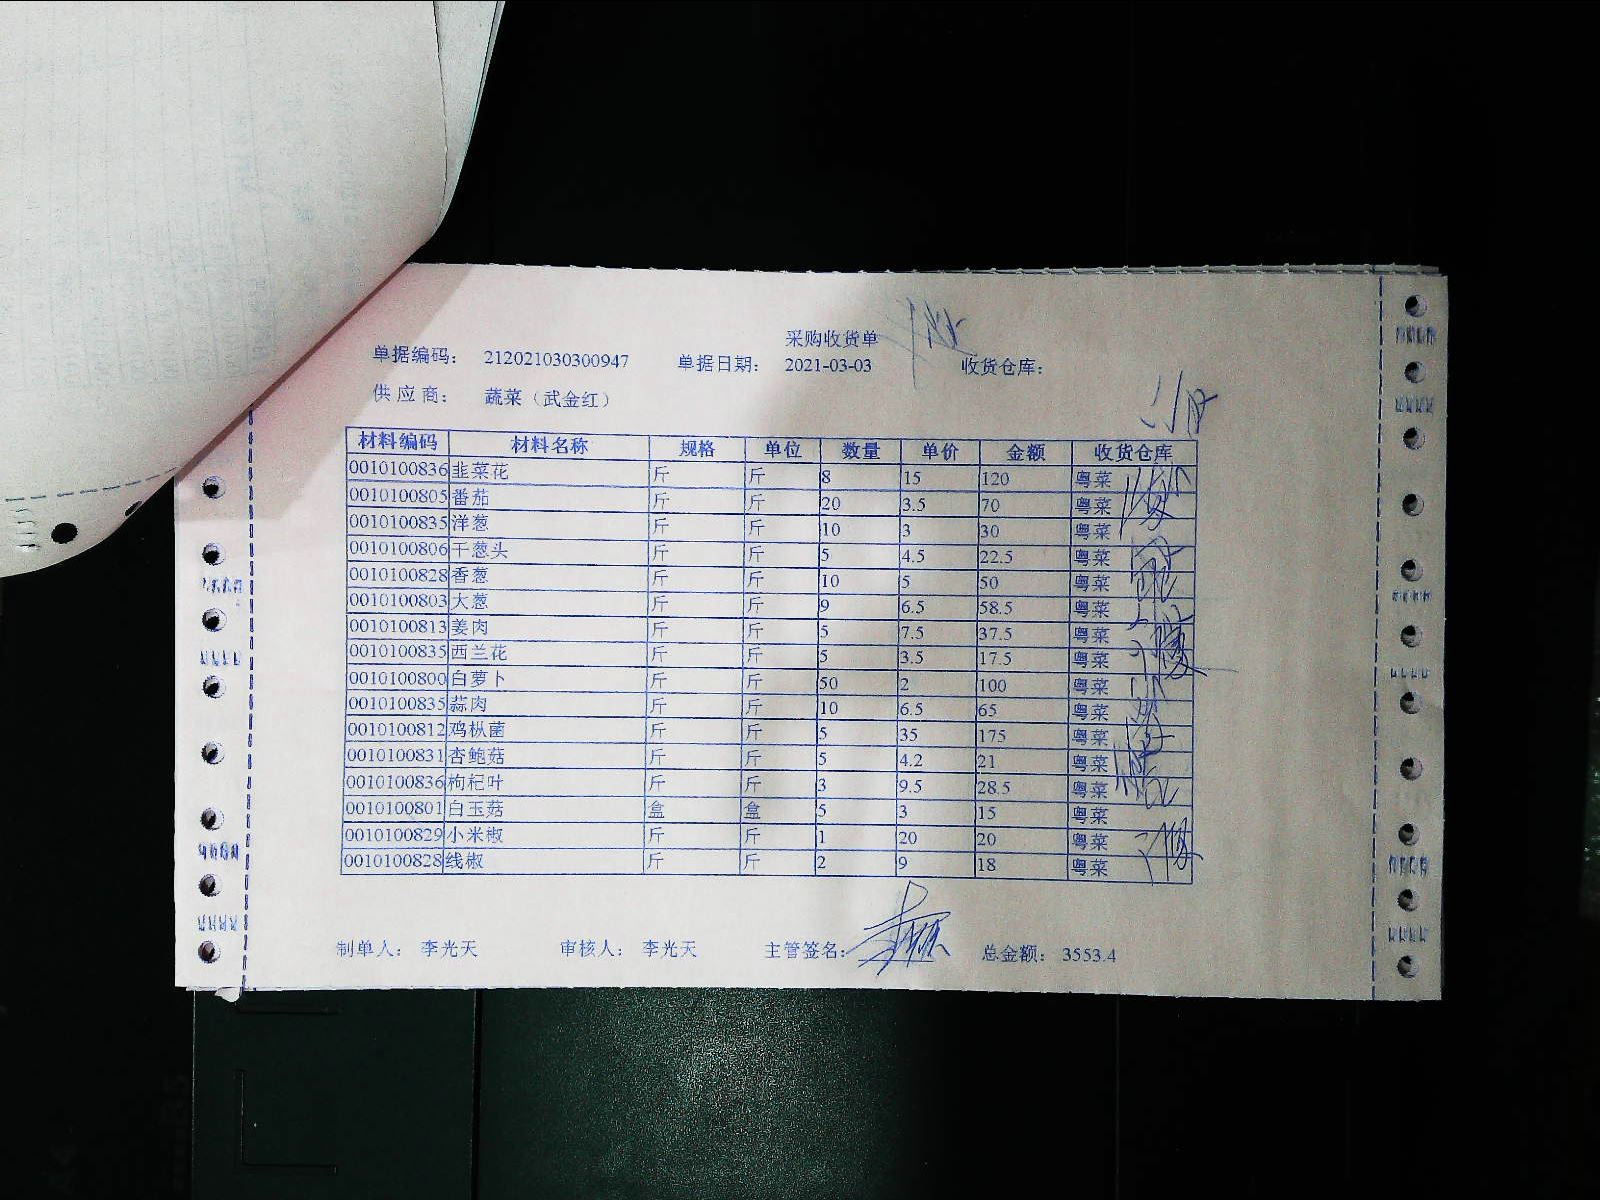 采购收货单
单据编码： 212021030300947 单据日期： 2021-03-03 收货仓库：
供应商： 蔬菜（武金红）
材料编码 材料名称 规格 单位 数量 单价 金额 收货仓库
0010100836 韭菜花 斤 斤 8 15 120 粤菜
0010100805 番茄 斤 斤 20 3.5 70 粤菜
0010100835 洋葱 斤 斤 10 3 30 粤菜
0010100806 干葱头 斤 斤 5 4.5 22.5 粤菜
0010100828 香葱 斤 斤 10 5 50 粤菜
0010100803 大葱 斤 斤 9 6.5 58.5 粤菜
0010100813 姜肉 斤 斤 5 7.5 37.5 粤菜
0010100835 西兰花 斤 斤 5 3.5 17.5 粤菜
0010100800 白萝卜 斤 斤 50 2 100 粤菜
0010100835 蒜肉 斤 斤 10 6.5 65 粤菜
0010100812 鸡枞菌 斤 斤 5 35 175 粤菜
0010100831 杏鲍菇 斤 斤 5 4.2 21 粤菜
0010100836 枸杞叶 斤 斤 3 9.5 28.5 粤菜
0010100801 白玉菇 盒 盒 5 3 15 粤菜
0010100829 小米椒 斤 斤 1 20 20 粤菜
0010100828 线椒 斤 斤 2 9 18 粤菜
制单人： 李光天 审核人： 李光天 主管签名： 总金额： 3553.4